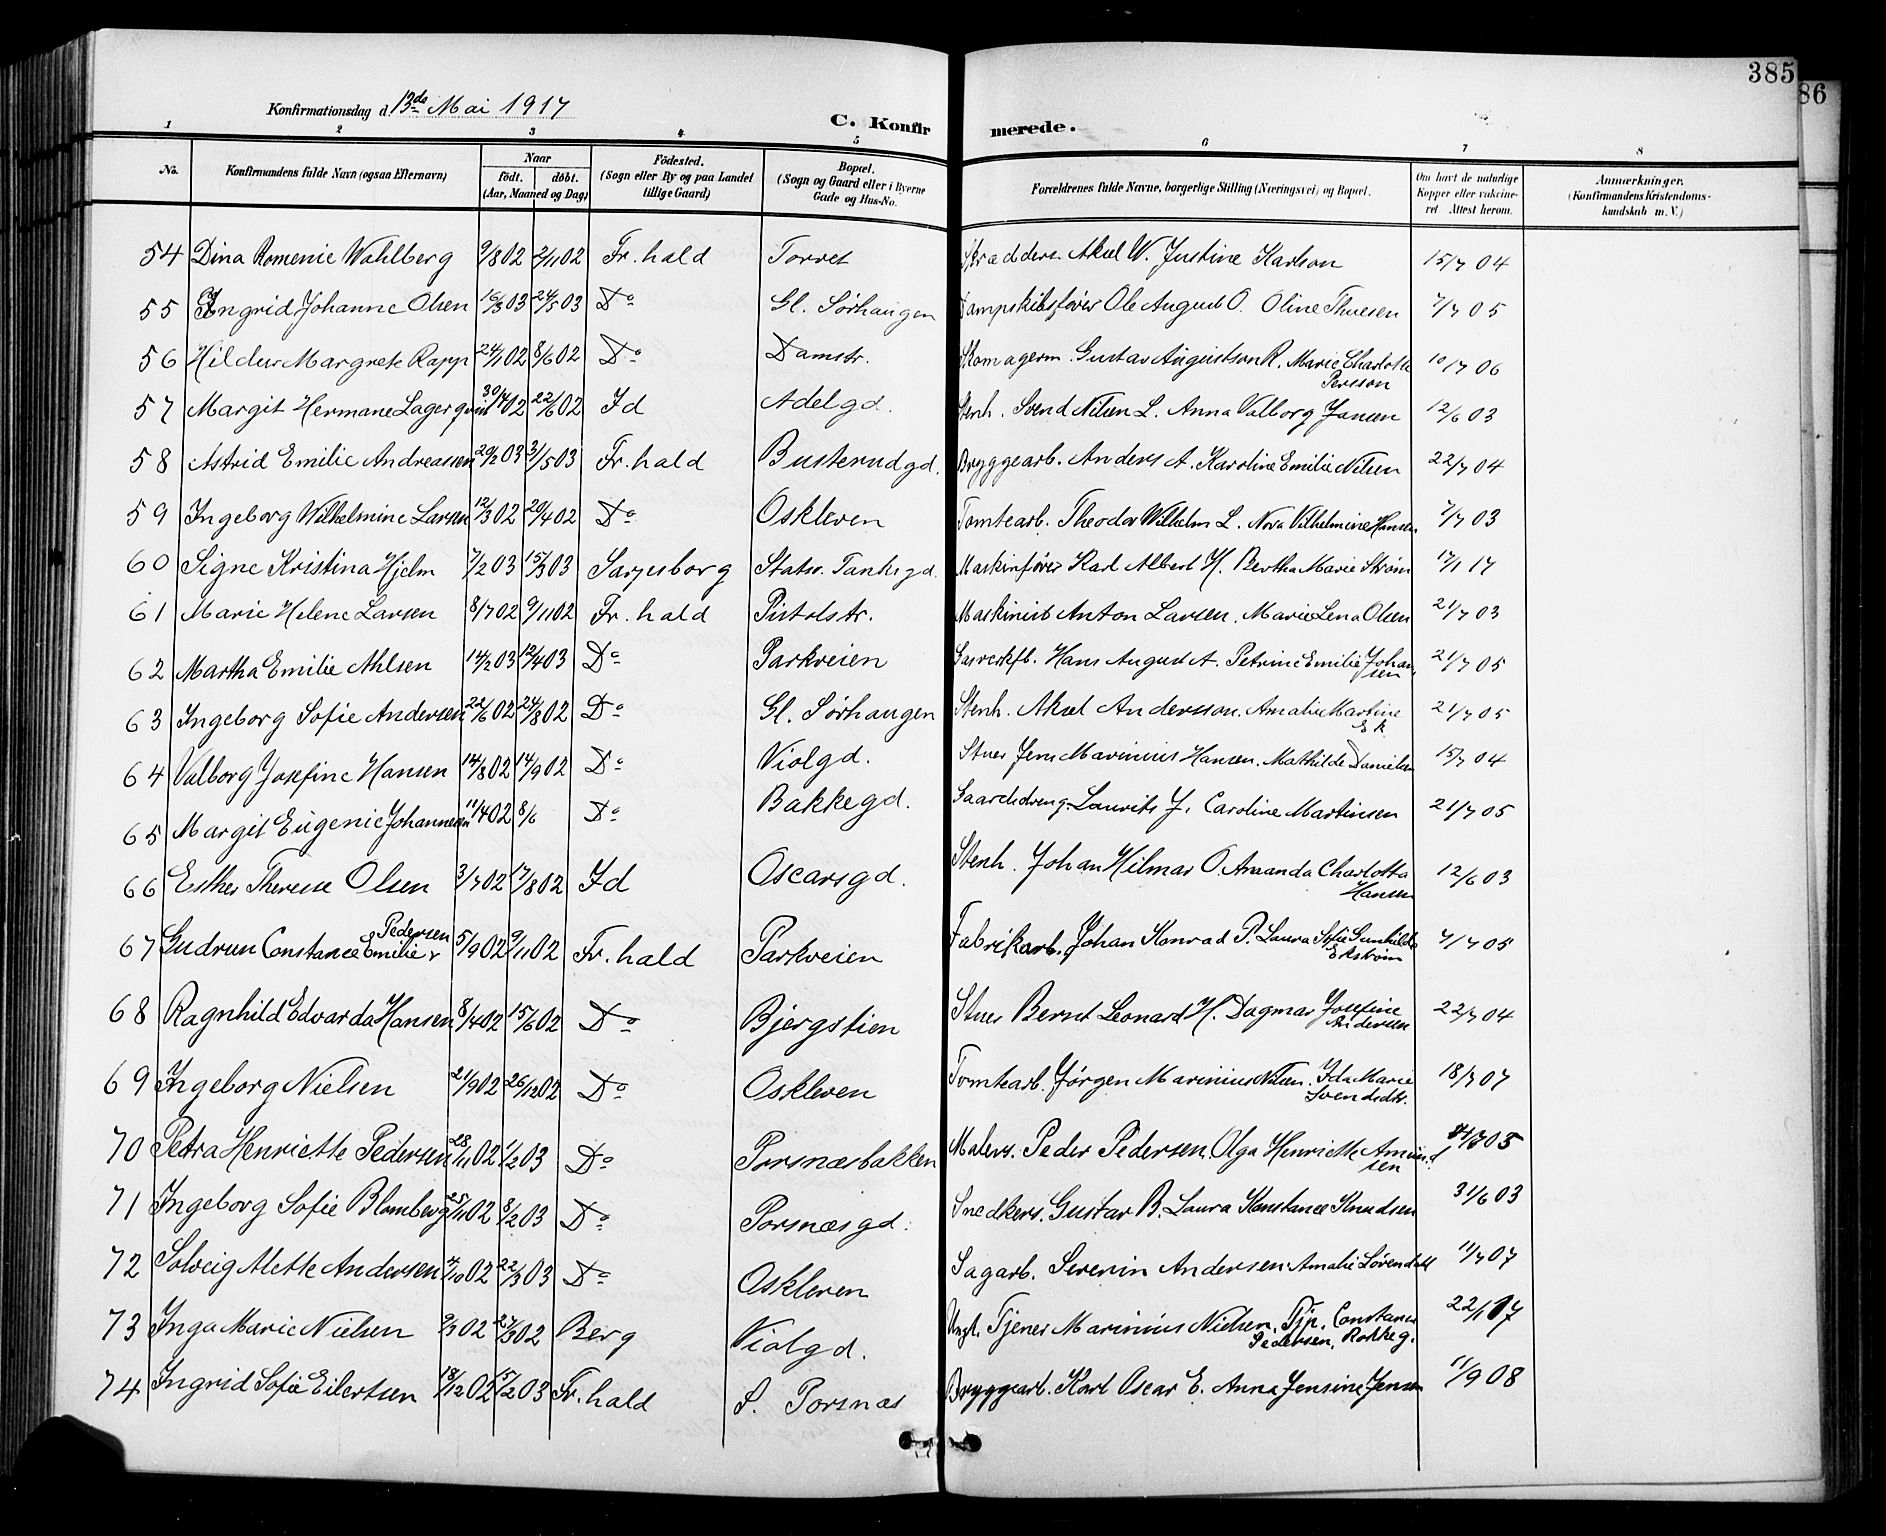 385
86
Konfirmationsdag d. 13de Mai 1917
C. Konfirmerede.
1 2 3 4 5 6 7 8
No. Konfirmandens fulde Navn (ogsaa Efternavn) Naar født. døbt. (Aar, Maaned og Dag) Fødested. (Sogn eller By og paa Landet tillige Gaard) Bopæl. (Sogn og Gaard eller i Byerne Gade og Hus-No. Forældrenes fulde Navne, borgerlige Stilling (Næringsvei) og Bopæl. Om havt de naturlige Kopper eller vakcineret Attest herom. Anmærkninger. (Konfirmandens Kristendomskundskab m. V.)
54 Dina Romenie Wahlberg 9/8 02 2/11 02 Fr.hald Torvet Skrædders. Aksel W. Justine Karlson 15/7 04
55 Ingrid Johanne Olsen 16/3 03 24/5 03 Do Gl. Sørhaugen Dampskibsfører Ole August O. Oline Thuesen 7/7 05
56 Hildur Margrete Rapp 24/1 02 8/6 02 Do Damstr. Skomagerm. Gustav Augustson R. Marie Charlotte Persson 10/7 06
57 Margit Hermane Lagerqvist 30/4 02 22/6 02 Id Adelgd. Stenh. Svend Nilsen L. Anna Valborg Jansen 12/6 03
58 Astrid Emilie Andreassen 20/2 03 3/5 03 Fr.hald Busterudgd. Bryggearb. Anders A. Karoline Emilie Nilsen 22/7 04
59 Ingeborg Wilhelmine Larsen 12/3 02 20/4 02 Do Oskleven Tomtearb. Theodor Wilhelm L. Nora Vilhelmine Hansen 7/7 03
60 Signe Kristina Hjelm 7/2 03 15/3 03 Sarpsborg Statsr. Tanksgd. Maskinfører Karl Albert H. Bertha Marie Strøm 17/1 17
61 Marie Helene Larsen 8/7 02 9/11 02 Fr.hald Pistolstr. Maskinist Anton Larsen. Marie Lena Olsen 21/7 03
62 Martha Emilie Ahlsen 14/2 03 12/4 03 Do Parkveien Gasverkfb. Hans August A. Petrine Emilie Johansen 21/7 05
63 Ingeborg Sofie Andersen 22/6 02 24/8 02 Do Gl. Sørhaugen Stenh. Aksel Andersson. Amalie Martine Ek 21/7 05
64 Valborg Josefine Hansen 14/8 02 14/9 02 Do Violgd. Stuer Jens Marinius Hansen. Mathilde Danielsen 15/7 04
65 Margit Eugenie Johannesen 11/4 02 8/6 Do Bakkegd. Gaardsdreng. Laurits J. Caroline Martinsen 21/7 05
66 Esther Therese Olsen 3/7 02 17/8 02 Id Oscarsgd. Stenh. Johan Hilmar O. Amanda Charlotta Hansen 12/6 03
67 Gudrun Constance Emilie Pedersen 5/9 02 9/11 02 Fr.hald Parkveien Fabrikarb. Johan Konrad P. Laura Sofie Gunhilda Ekstrøm 7/7 05
68 Ragnhild Edvarda Hansen 8/4 02 15/6 02 Do Bjergstien Stuer Bernt Leonard H. Dagmar Josefine Andersen 22/7 04
69 Ingeborg Nielsen 21/9 02 26/12 02 Do Oskleven Tomtearb. Jørgen Marinius Nilsen. Ida Marie Svendsdtr. 18/7 07
70 Petra Henriette Pedersen 28/11 02 1/2 03 Do Porsnæsbakken Malers. Peder Pedersen. Olga Henriette Amundsen 05
71 Ingeborg Sofie Blomberg 25/11 02 8/2 03 Do Porsnæsgd. Snedkers. Gustav B. Laura Konstance Knudsen 31/6 03
72 Solveig Alette Andersen 7/10 02 22/3 03 Do Oskleven Sagarb. Severin Andersen Amalie Sørendall 11/7 07
73 Inga Marie Nielsen 9/3 02 27/3 02 Berg Violgd. Ungk. Tjener Marinius Nielsen, Tjp. Constance Pedersen, Rokkeg. 22/1 17
74 Ingrid Sofie Eilertsen 18/12 02 15/2 03 Fr.hald S. Porsnæs Bryggearb. Karl Oscar E. Anna Jensine Jensen 11/9 08